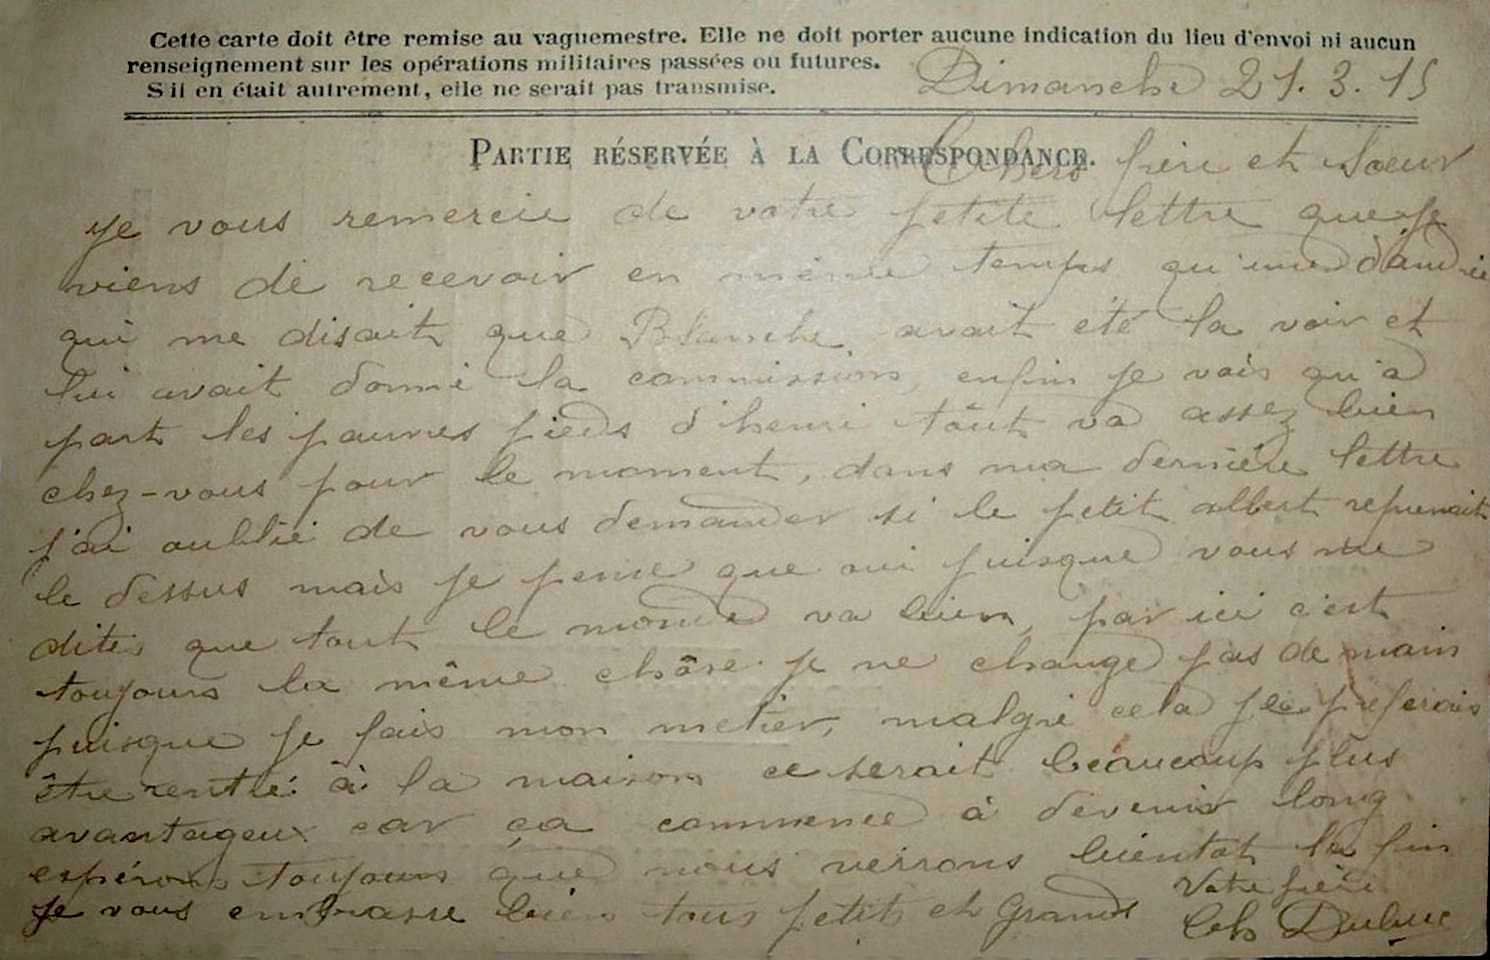 Cette carte doit être remise au vaguemestre. Elle ne doit porter aucune indication du lieu d'envoi ni aucun
renseignement sur les opérations militaires passées ou futures.
S'il en était autrement, elle ne serait pas transmise.
Dimanche 21.3.15
PARTIE RÉSERVÉE À LA CORRESPONDANCE.
Chers frère et Soeur
Je vous remercie de votre petite lettre que je
viens de recevoir en même temps qu'une
qui me disait que Blanche avait été la voir et
lui avait donné la commission, enfin je vois qu'à
part les pauvres pieds d'henri tôut va assez bien
chez-vous pour le moment, dans ma dernière lettre
j'ai oublié de vous demander si le petit albert reprenait
le dessus mais je pense que oui puisque vous me
dites que tout le monde va bien, par ici c'est
toujours la même chôse je ne change pas de main
puisque je fais mon metier, malgré cela je préferais
être rentré à la maison ce serait beaucoup plus
avantageux car ça commence à devenir long
espérons toujours que nous verrons bientot la fin
Je vous embrasse bien tous petits et Grands
Votre frère
Ch Dubuc